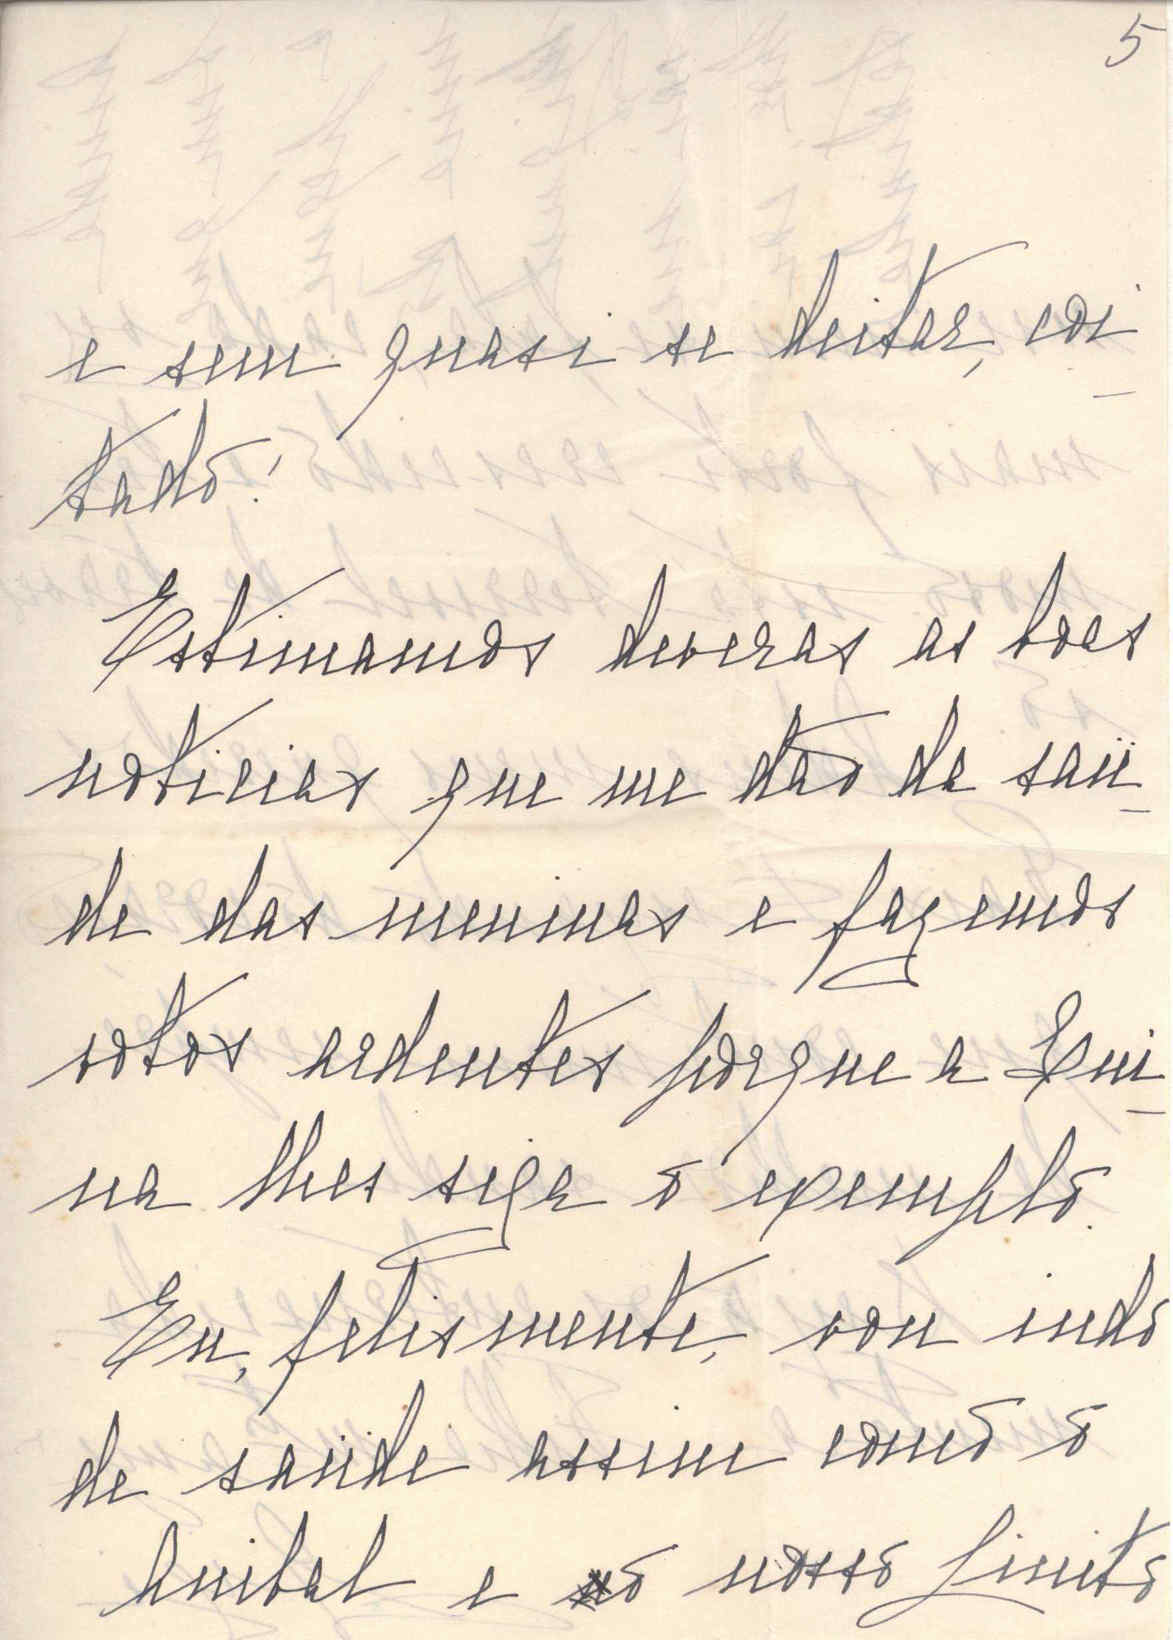 5
e sem quasi se deitar, coi-
tado!
Estimamos deveras as boas
noticias que me dão da saü-
de das meninas e fazemos
votos ardentes porque a Eui-
na lhes siga o exemplo.
Eu, felismente, vou indo
de saüde assim como o
Anibal e o nosso Jinito